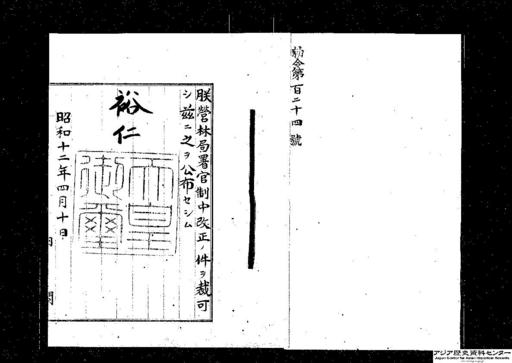 勅令第百二十四號
朕營林局署官制中改正ノ件ヲ裁可
シ茲ニ之ヲ公布セシム
裕仁
天皇御璽
昭和十二年四月十日
アジア歴史資料センター
Japan Center for Asian Historical Records